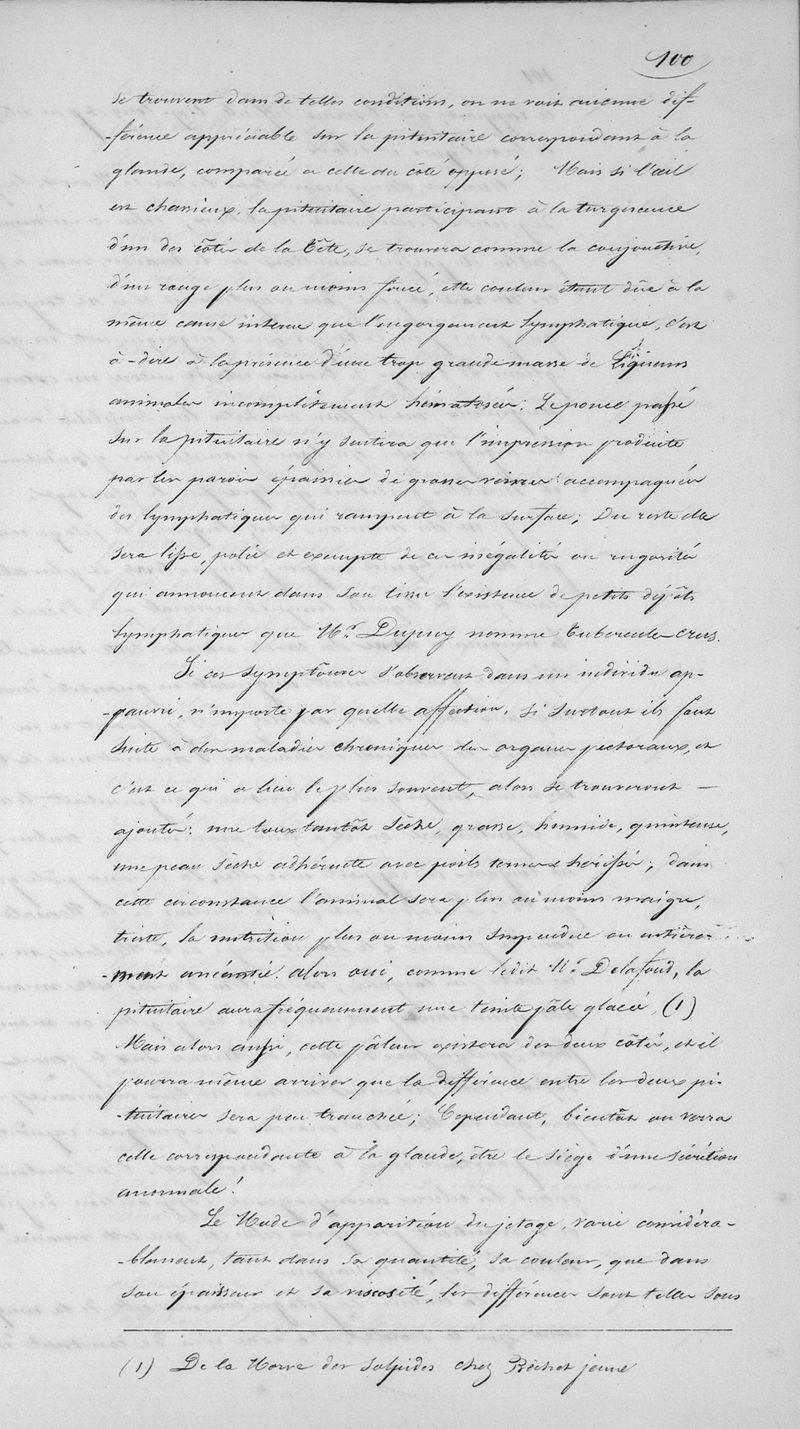 100
se trouvent dans de telles conditions, on ne voit aucune dif-
-férence appréciable sur la pituitaire correspondant à la
glande, comparée a celle du côté opposé; Mais si l'œil
est chassieux, la pituitaire participant à la turgescence
d'un des côtés de la Tête, se trouvera comme la conjonctive,
d'un rouge plus ou moins foncé, cette couleur étant dûe à la
même cause interne que l'engorgement lymphatique, c'est
à-dire à la présence d'une trop grande masse de liqueurs
animales incomplètement hématosées: Le pouce passé
sur la pituitaire n'y sentira que l'impression produite
par les parois épaissies de grosses veines accompagnées
des lymphatiques qui rampent à la surface; Du reste elle
sera lisse, polie et exempte de ces inégalités ou rugosités
qui annoncent dans son tissu l'existence de petits dépôts
lymphatiques que Mr. Dupuy nomme tubercules crus.
Si ces symptômes s'observent dans un individu ap-
-pauvri, n'importe par quelle affection, si surtout ils font
suite à des maladies chroniques des organes pectoraux, et
c'est ce qui a lieu le plus souvent, alors se trouveront —
ajoutés: une toux tantôt sèche, grasse, humide, quinteuse,
une peau sèche adhérente avec poils ternes hérissés; dans
cette circonstance l'animal sera plus ou moins maigre,
triste, la nutrition plus ou moins suspendue ou entière-
-ment anéantie. alors oui, comme le dit Mr. Delafond, la
pituitaire aura fréquemment une teinte pâle glacée, (1)
Mais alors aussi, cette pâleur existera des deux côtés, et il
pourra même arriver que la différence entre les deux pi-
-tuitaires sera peu tranchée; Cependant, bientôt on verra
celle correspondante à la glande, être le siège d'une sécrétion
anormale!
Le Mode d'apparition du jetage, varie considéra-
-blement, tant dans sa quantité, sa couleur, que dans
son épaisseur et sa viscosité, les différences sont telles sous
(1) De la Morve des Solipèdes chez Béchet jeune